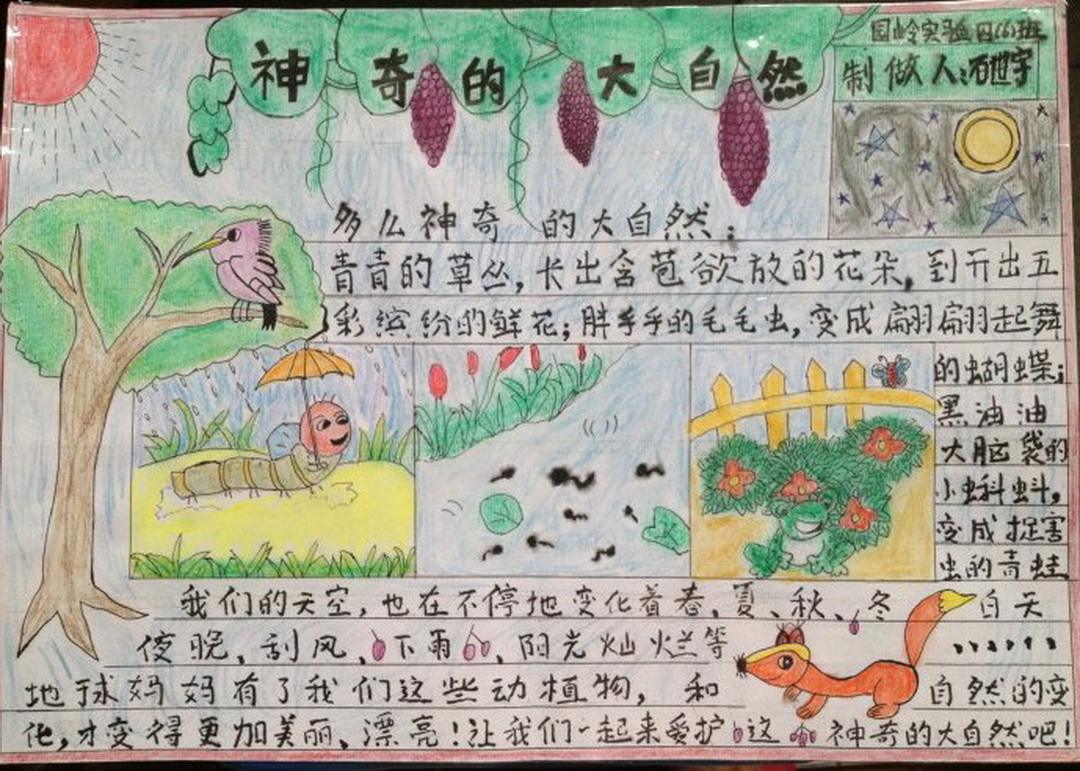 神奇的大自然
园岭实验四(6)班
制做人:石世宇
多么神奇的大自然:
青青的草丛,长出含苞欲放的花朵,到开出五
彩缤纷的鲜花;胖乎乎的毛毛虫,变成翩翩起舞
的蝴蝶;
黑油油
大脑袋的
小蝌蚪,
变成捉害
虫的青蛙
我们的天空,也在不停地变化着春、夏、秋、冬、白天
夜晚、刮风、下雨、阳光灿烂等……
地球妈妈有了我们这些动植物,和自然的变
化,才变得更加美丽、漂亮!让我们一起来爱护这神奇的大自然吧!